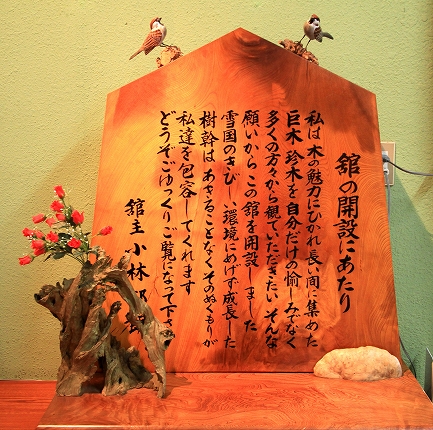 舘の開設にあたり
私は 木の魅力にひかれ長い間に集めた
巨木 珍木を自分だけの愉しみでなく
多くの方々から観ていただきたい そんな
願いから この舘を開設しました
雪国のきびしい環境にめげず成長した
樹幹は あせることなくそのぬくもりが
私達を包容してくれます
どうぞごゆっくりご覧になって下さ
舘主 小林